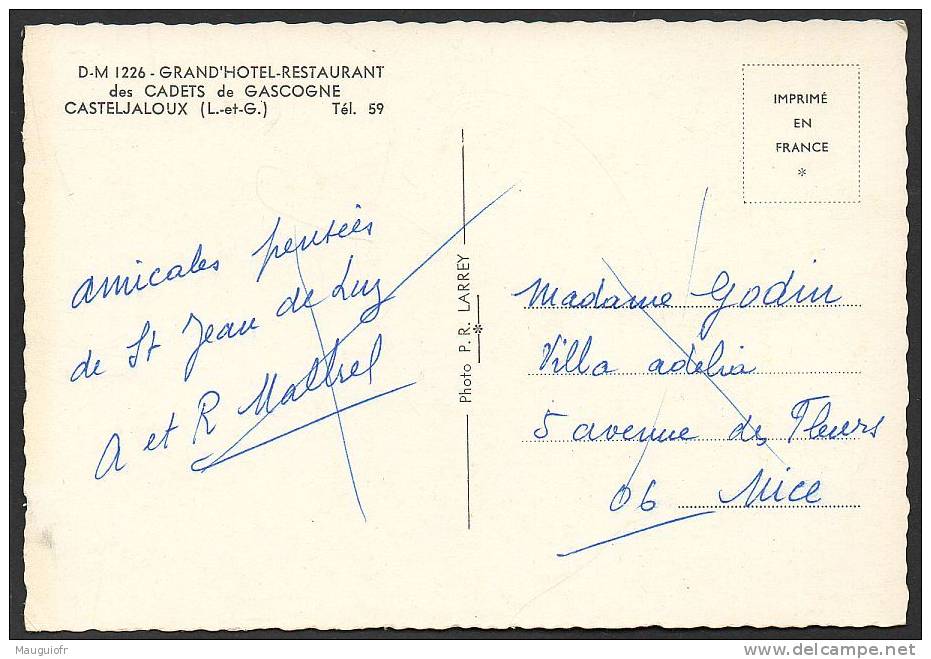 D-M 1226 - GRAND'HOTEL-RESTAURANT
des CADETS de GASCOGNE
CASTELJALOUX (L.-et-G.) Tél. 59
IMPRIMÉ
EN
FRANCE
*
amicales pensées
de St Jean de Luz
A et R
Photo P. R. LARREY
*
Madame Godin
Villa adelia
5 avenue des Fleurs
06 Nice
Mauguiofr
delcampe.net